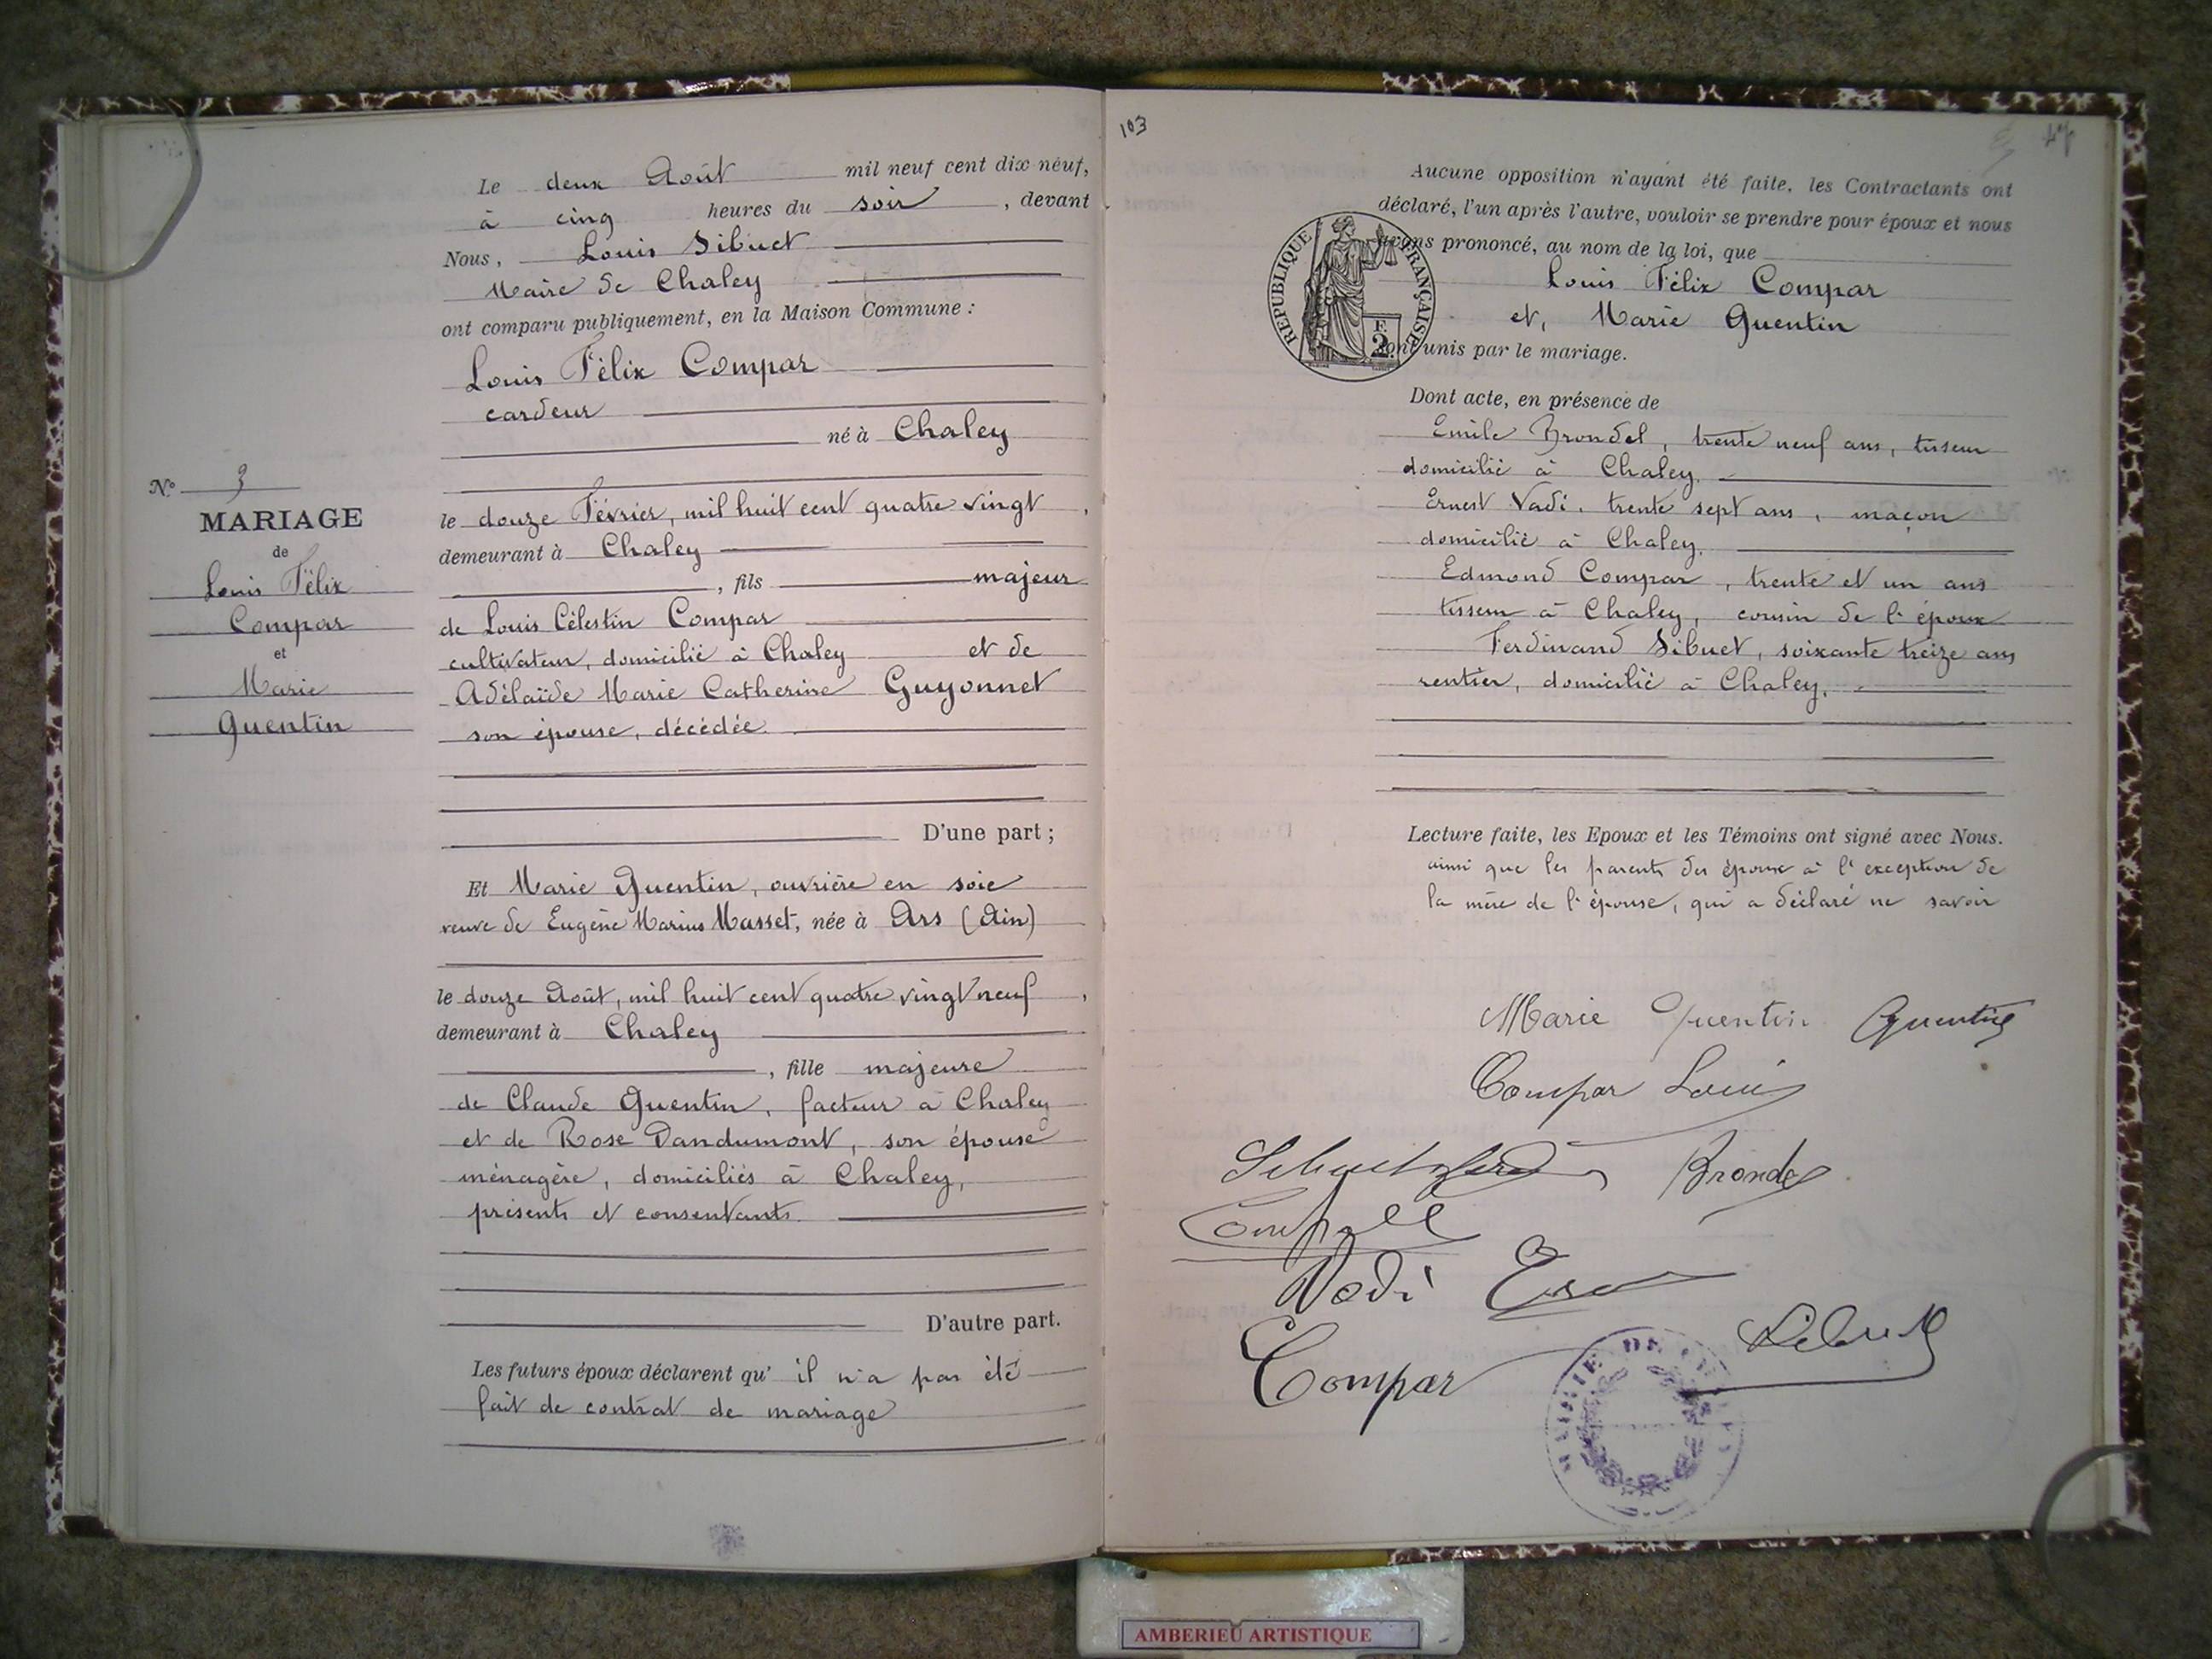 Le deux Août mil neuf cent dix neuf,
à cinq heures du soir, devant
Nous, Louis Sibuet
Maire de Chaley
ont comparu publiquement, en la Maison Commune :
Louis Félix Compar
cardeur
né à Chaley
le douze Février, mil huit cent quatre vingt,
demeurant à Chaley
, fils majeur
de Louis Célestin Compar
cultivateur, domicilié à Chaley et de
Adélaïde Marie Catherine Guyonnet
son épouse, décédée.
D'une part ;
Et Marie Quentin, ouvrière en soie
veuve de Eugène Marius Masset, née à Ars (Ain)
le douze Août, mil huit cent quatre vingt neuf,
demeurant à Chaley
, fille majeure
de Claude Quentin, facteur à Chaley
et de Rose Dandumont, son épouse
ménagère, domiciliés à Chaley,
présents et consentants.
D'autre part.
Les futurs époux déclarent qu' il n'a pas été
fait de contrat de mariage
N° 3
MARIAGE
de
Louis Félix
Compar
et
Marie
Quentin
103
47
Aucune opposition n'ayant été faite, les Contractants ont
déclaré, l'un après l'autre, vouloir se prendre pour époux et nous
avons prononcé, au nom de la loi, que
Louis Félix Compar
et, Marie Quentin
sont unis par le mariage.
RÉPUBLIQUE FRANÇAISE
F.
2
Dont acte, en présence de
Emile Brondel, trente neuf ans, tisseur
domicilié à Chaley.
Ernest Vadi, trente sept ans, maçon
domicilié à Chaley.
Edmond Compar, trente et un ans
tisseur à Chaley, cousin de l'époux
Ferdinand Sibuet, soixante treize ans
rentier, domicilié à Chaley.
Lecture faite, les Epoux et les Témoins ont signé avec Nous.
ainsi que les parents des époux à l'exception de
la mère de l'épouse, qui a déclaré ne savoir
Marie Quentin Quentin
Compar Louis
Sibuet Brondel
Vadi
Compar Sibuet
MAIRIE DE
AMBERIEU ARTISTIQUE